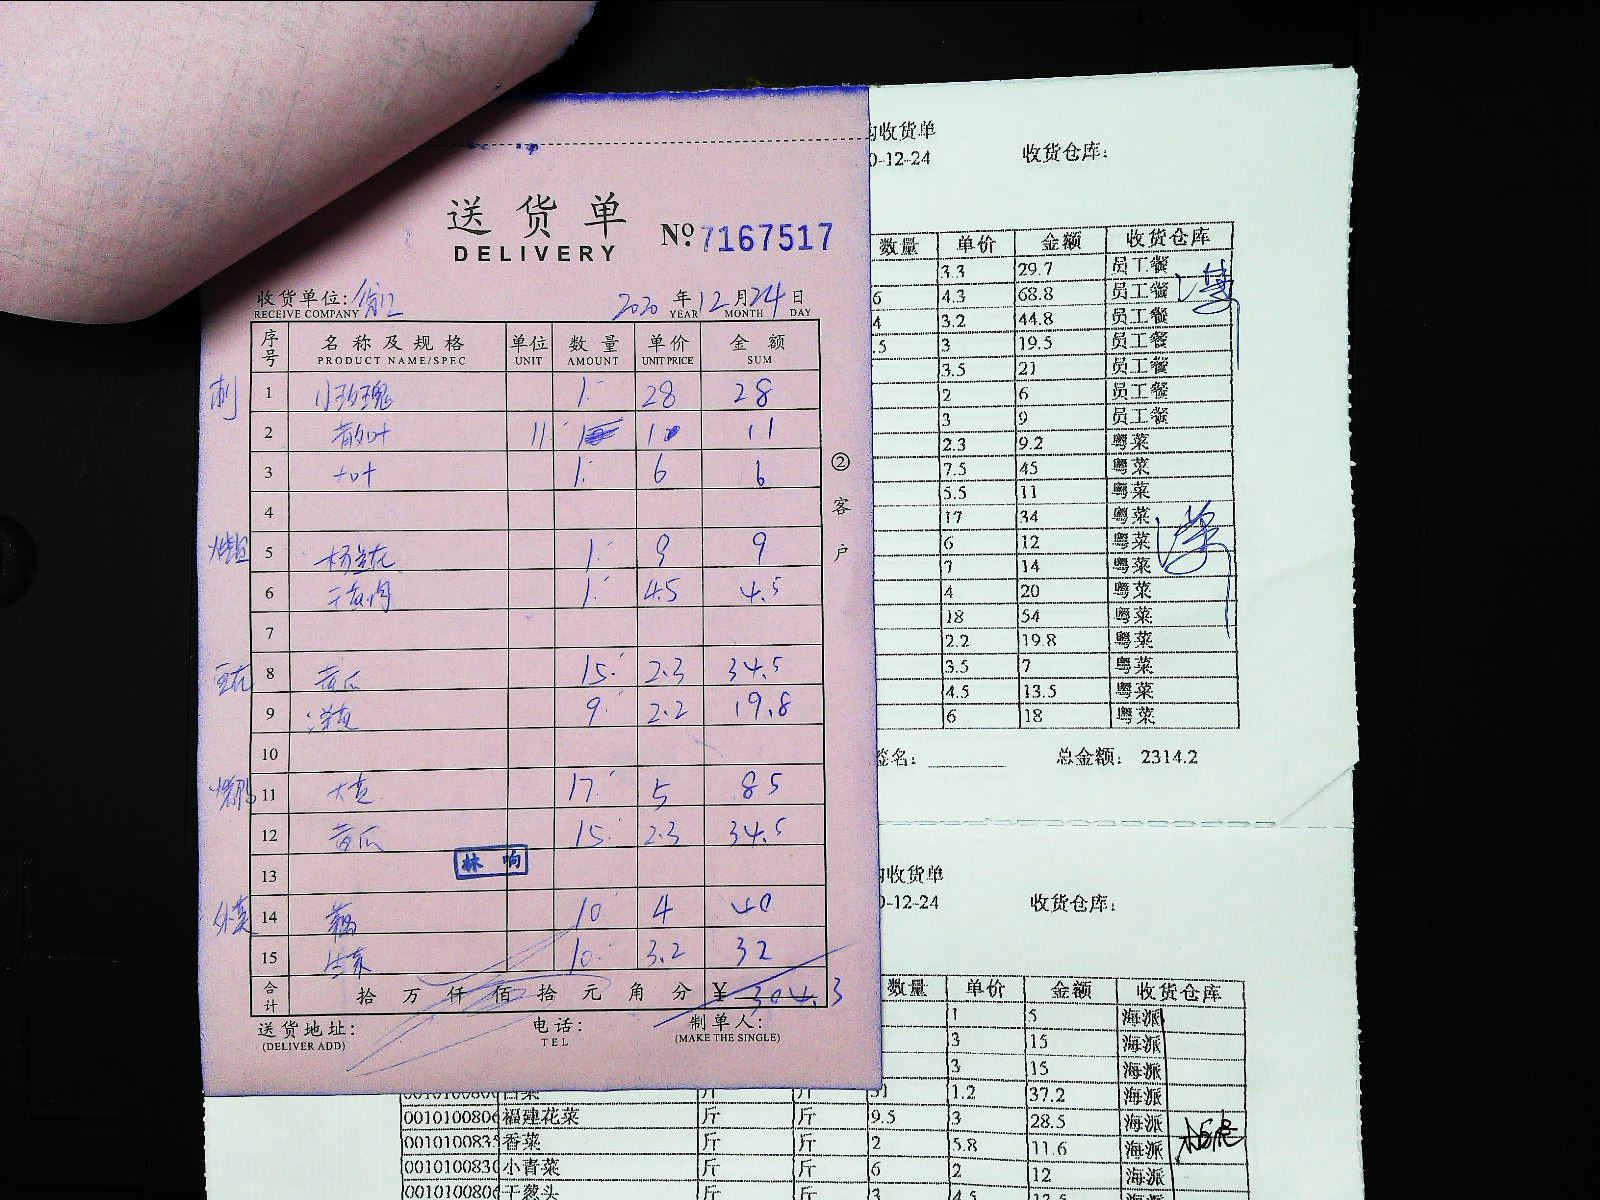 送货单
DELIVERY
№ 7167517
收货单位:
RECEIVE COMPANY
2020 年 12 月 24 日
YEAR MONTH DAY
序号 名称及规格 单位 数量 单价 金额
PRODUCT NAME/SPEC UNIT AMOUNT UNIT PRICE SUM
1 小玫瑰 1 28 28
2 11 1 11
3 1 6 6
4
5 1 9 9
6 1 4.5 4.5
7
8 黄瓜 15 2.3 34.5
9 9 2.2 19.8
10
11 17 5 85
12 黄瓜 15 2.3 34.5
林响
13
外卖 14 10 4 40
15 生菜 10 3.2 32
合计 拾 万 仟 佰 拾 元 角 分 ¥ 304.3
送货地址:
(DELIVER ADD)
电话:
TEL
制单人:
(MAKE THE SINGLE)
②客户
收货单
0-12-24 收货仓库:
数量 单价 金额 收货仓库
3.3 29.7 员工餐
6 4.3 68.8 员工餐
4 3.2 44.8 员工餐
.5 3 19.5 员工餐
3.5 21 员工餐
2 6 员工餐
3 9 员工餐
2.3 9.2 粤菜
7.5 45 粤菜
5.5 11 粤菜
17 34 粤菜
6 12 粤菜
7 14 粤菜
4 20 粤菜
18 54 粤菜
2.2 19.8 粤菜
3.5 7 粤菜
4.5 13.5 粤菜
6 18 粤菜
签名: 总金额: 2314.2
收货单
0-12-24 收货仓库:
数量 单价 金额 收货仓库
1 5 海派
3 15 海派
3 15 海派
斤 斤 31 1.2 37.2 海派
0010100806 福建花菜 斤 斤 9.5 3 28.5 海派
0010100835 香菜 斤 斤 2 5.8 11.6 海派
0010100830 小青菜 斤 斤 6 2 12 海派
0010100806 干葱头 斤 斤 3 4.5